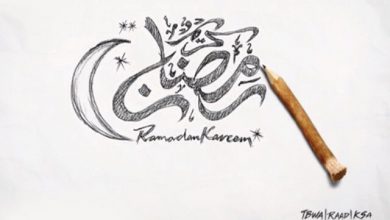 رمضان كريم
Ramadan Kareem
TBWA\RAAD\KSA